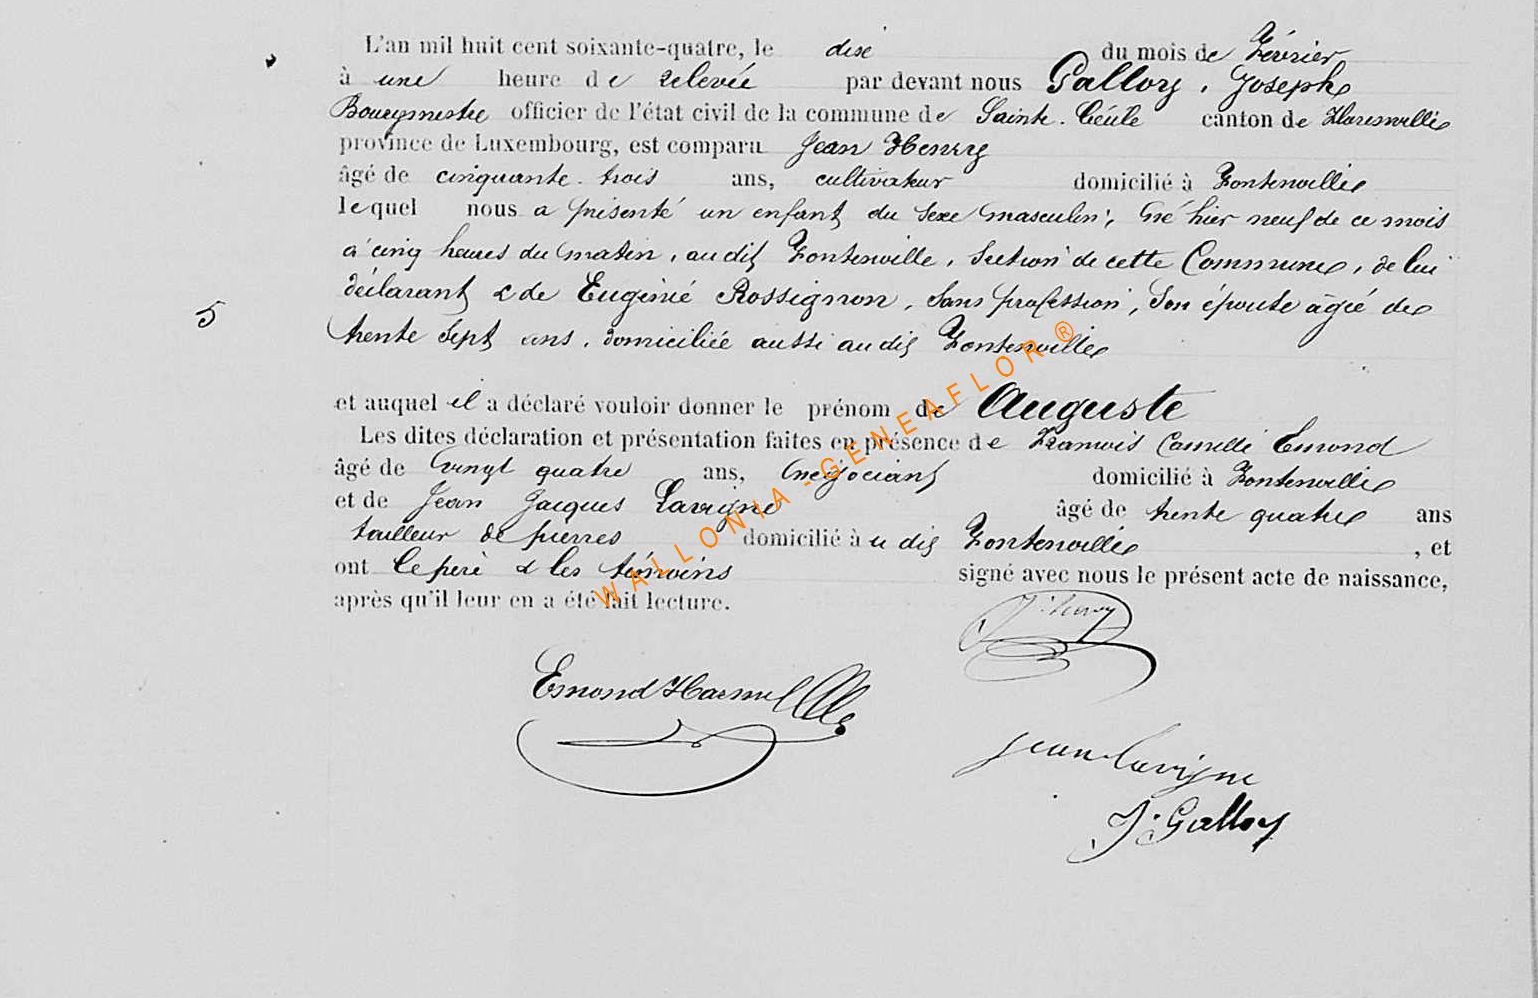 L'an mil huit cent soixante-quatre, le dix du mois de Février
à une heure de relevée par devant nous Galloy, Joseph
Bourgmestre officier de l'état civil de la commune de Sainte-Cécile canton de Florenville
province de Luxembourg, est comparu Jean Henry
âgé de cinquante-trois ans, cultivateur domicilié à Fontenoille
lequel nous a présenté un enfant du sexe masculin, Né hier neuf de ce mois
à cinq heures du matin, audit Fontenoille, Section de cette Commune, de lui
déclarant & de Eugénie Rossignon, sans profession, Son épouse âgée de
trente sept ans, domiciliée aussi audit Fontenoille
5
et auquel il a déclaré vouloir donner le prénom de Auguste
Les dites déclaration et présentation faites en présence de François Camille Emond
âgé de vingt quatre ans, négociant domicilié à Fontenoille
et de Jean Jacques Lavigne âgé de trente quatre ans
tailleur de pierres domicilié à u dit Fontenoille , et
ont le père & les témoins signé avec nous le présent acte de naissance,
après qu'il leur en a été fait lecture.
J. henry
Emond Harmel
Jean Lavigne
J. Galloy
WALLONIA - GENEAFLOR ®